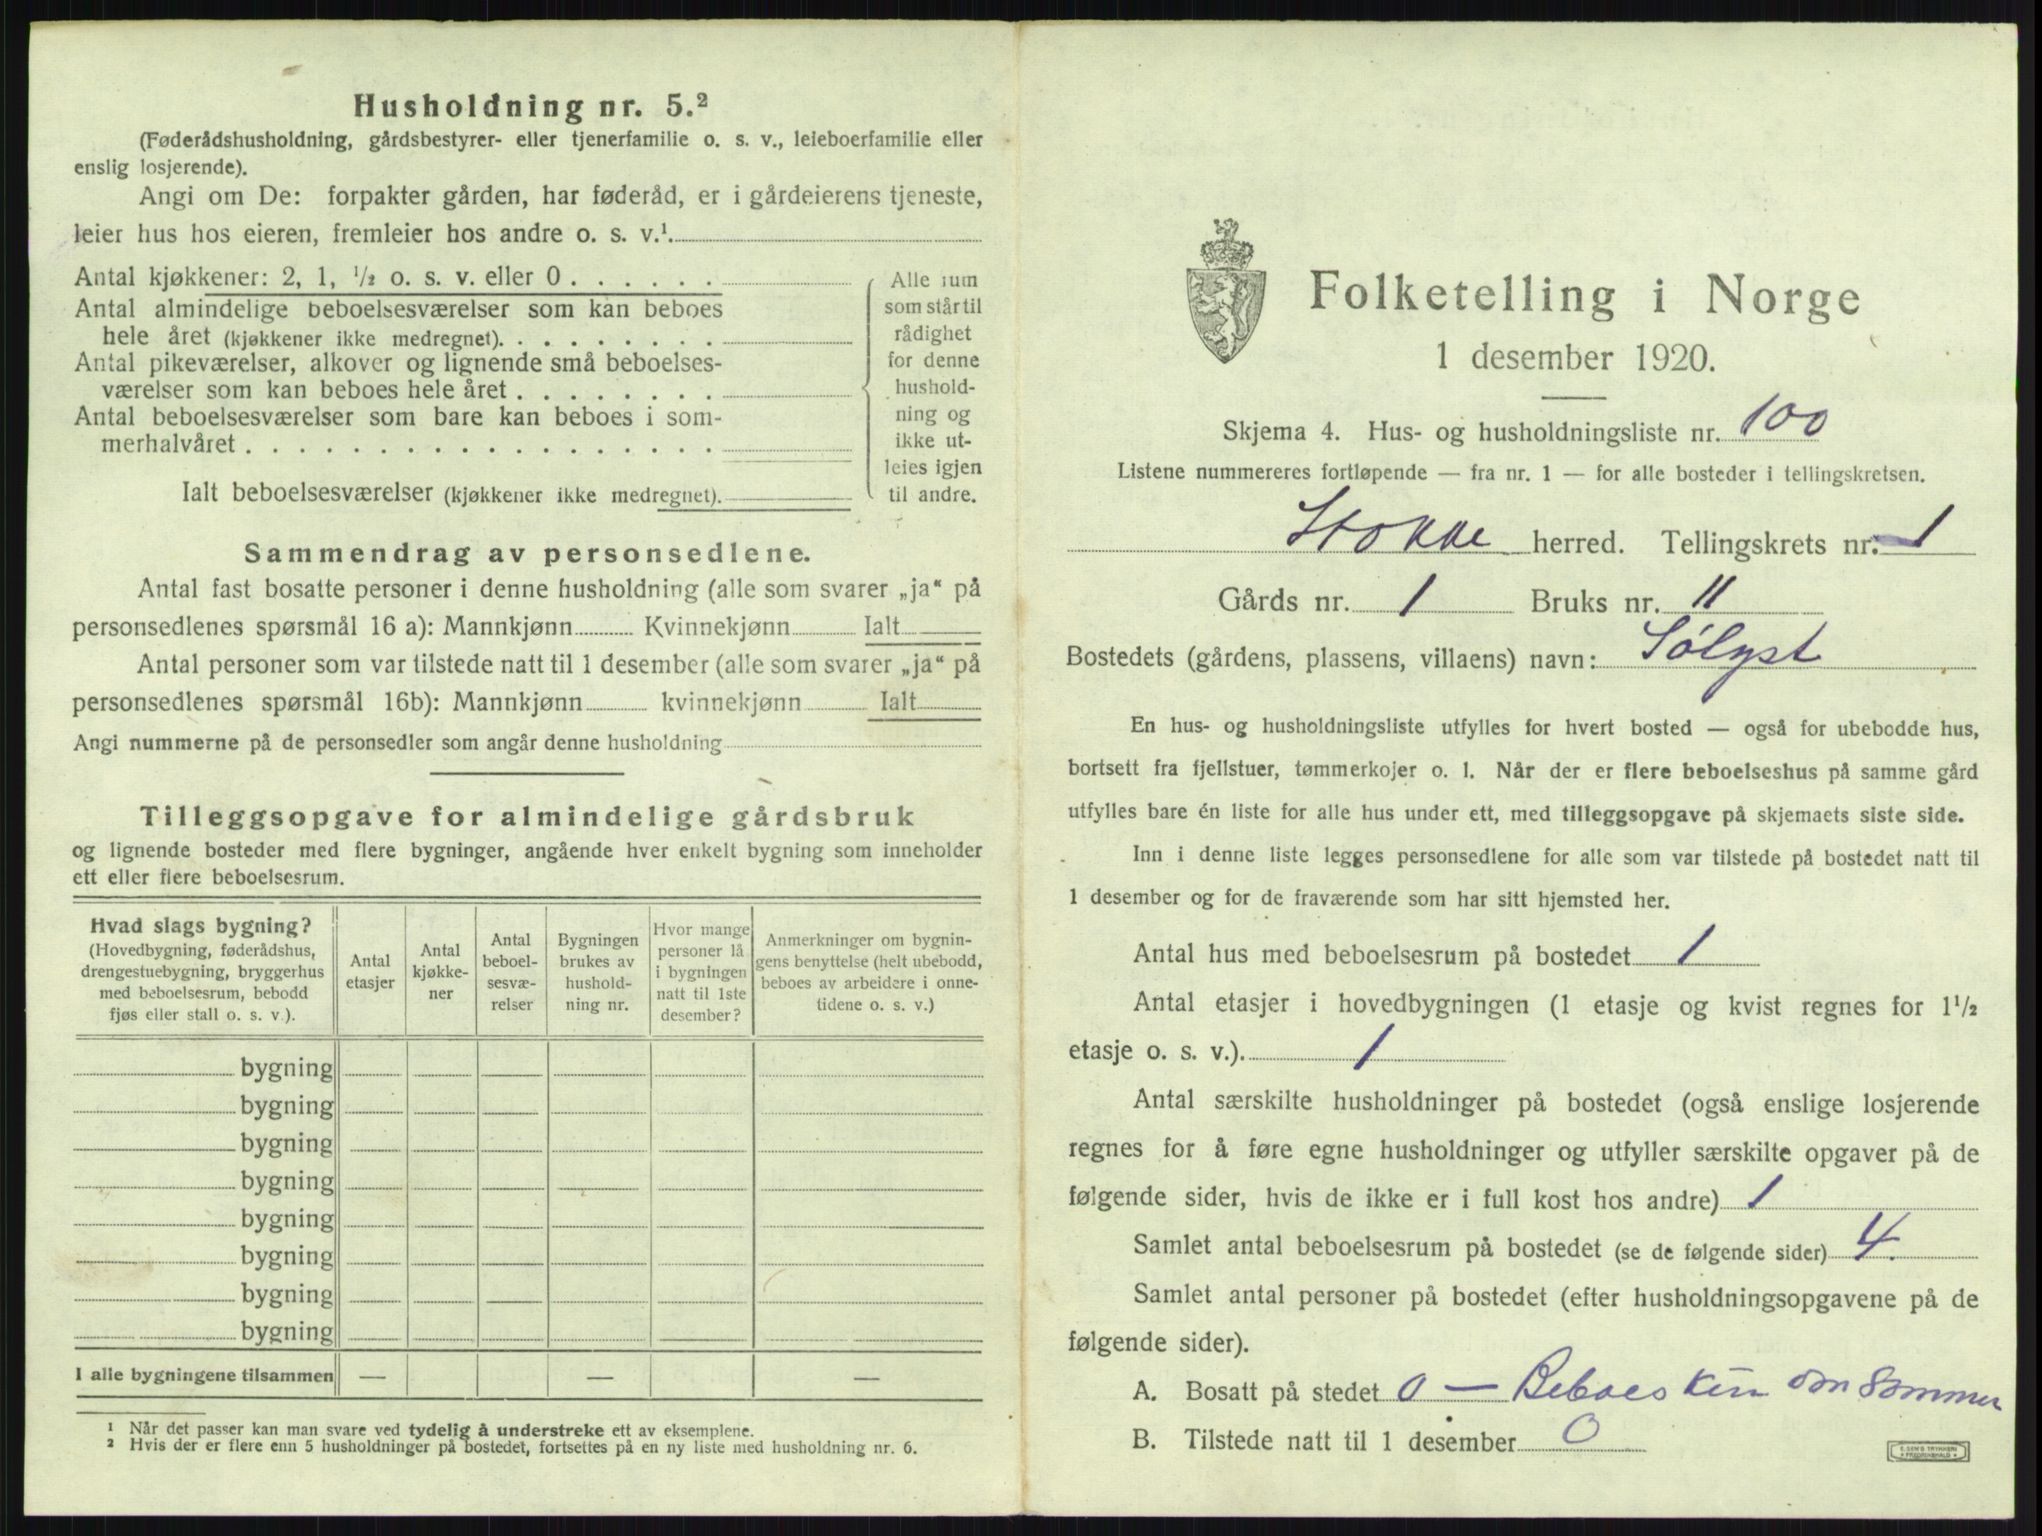 Husholdning nr. 5.²
(Føderådshusholdning, gårdsbestyrer- eller tjenerfamilie o. s. v., leieboerfamilie eller
enslig losjerende).
Angi om De: forpakter gården, har føderåd, er i gårdeierens tjeneste,
leier hus hos eieren, fremleier hos andre o. s. v.¹
Antal kjøkkener: 2, 1, ½ o. s. v. eller 0
Antal almindelige beboelsesværelser som kan beboes
hele året (kjøkkener ikke medregnet).
Antal pikeværelser, alkover og lignende små beboelses-
værelser som kan beboes hele året
Antal beboelsesværelser som bare kan beboes i som-
merhalvåret
Ialt beboelsesværelser (kjøkkener ikke medregnet).
Alle rum
som står til
rådighet
for denne
hushold-
ning og
ikke ut-
leies igjen
til andre.
Sammendrag av personsedlene.
Antal fast bosatte personer i denne husholdning (alle som svarer „ja“ på
personsedlenes spørsmål 16 a): Mannkjønn Kvinnekjønn Ialt
Antal personer som var tilstede natt til 1 desember (alle som svarer „ja“ på
personsedlenes spørsmål 16b): Mannkjønn kvinnekjønn Ialt
Angi nummerne på de personsedler som angår denne husholdning
Tilleggsopgave for almindelige gårdsbruk
og lignende bosteder med flere bygninger, angående hver enkelt bygning som inneholder
ett eller flere beboelsesrum.
Hvad slags bygning?
(Hovedbygning, føderådshus,
drengestuebygning, bryggerhus
med beboelsesrum, bebodd
fjøs eller stall o. s. v.).
Antal
etasjer
Antal
kjøkke-
ner
Antal
beboel-
sesvæ-
relser
Bygningen
brukes av
hushold-
ning nr.
Hvor mange
personer lå
i bygningen
natt til 1ste
desember?
Anmerkninger om bygnin-
gens benyttelse (helt ubebodd,
beboes av arbeidere i onne-
tidene o. s. v.)
bygning
bygning
bygning
bygning
bygning
bygning
bygning
bygning
I alle bygningene tilsammen — — —
¹ Når det passer kan man svare ved tydelig å understreke ett av eksemplene.
² Hvis der er flere enn 5 husholdninger på bostedet, fortsettes på en ny liste med husholdning nr. 6.
Folketelling i Norge
1 desember 1920.
Skjema 4. Hus- og husholdningsliste nr. 100
Listene nummereres fortløpende — fra nr. 1 — for alle bosteder i tellingskretsen.
Stokke herred. Tellingskrets nr. 1
Gårds nr. 1 Bruks nr. 11
Bostedets (gårdens, plassens, villaens) navn: Sølyst
En hus- og husholdningsliste utfylles for hvert bosted — også for ubebodde hus,
bortsett fra fjellstuer, tømmerkojer o. l. Når der er flere beboelseshus på samme gård
utfylles bare én liste for alle hus under ett, med tilleggsopgave på skjemaets siste side.
Inn i denne liste legges personsedlene for alle som var tilstede på bostedet natt til
1 desember og for de fraværende som har sitt hjemsted her.
Antal hus med beboelsesrum på bostedet 1
Antal etasjer i hovedbygningen (1 etasje og kvist regnes for 1½
etasje o. s. v.). 1
Antal særskilte husholdninger på bostedet (også enslige losjerende
regnes for å føre egne husholdninger og utfyller særskilte opgaver på de
følgende sider, hvis de ikke er i full kost hos andre) 1
Samlet antal beboelsesrum på bostedet (se de følgende sider) 4.
Samlet antal personer på bostedet (efter husholdningsopgavene på de
følgende sider).
A. Bosatt på stedet 0 — Beboes kun om Sommer
B. Tilstede natt til 1 desember 0
E. SEM'S TRYKKERI
FREDRIKSHALD